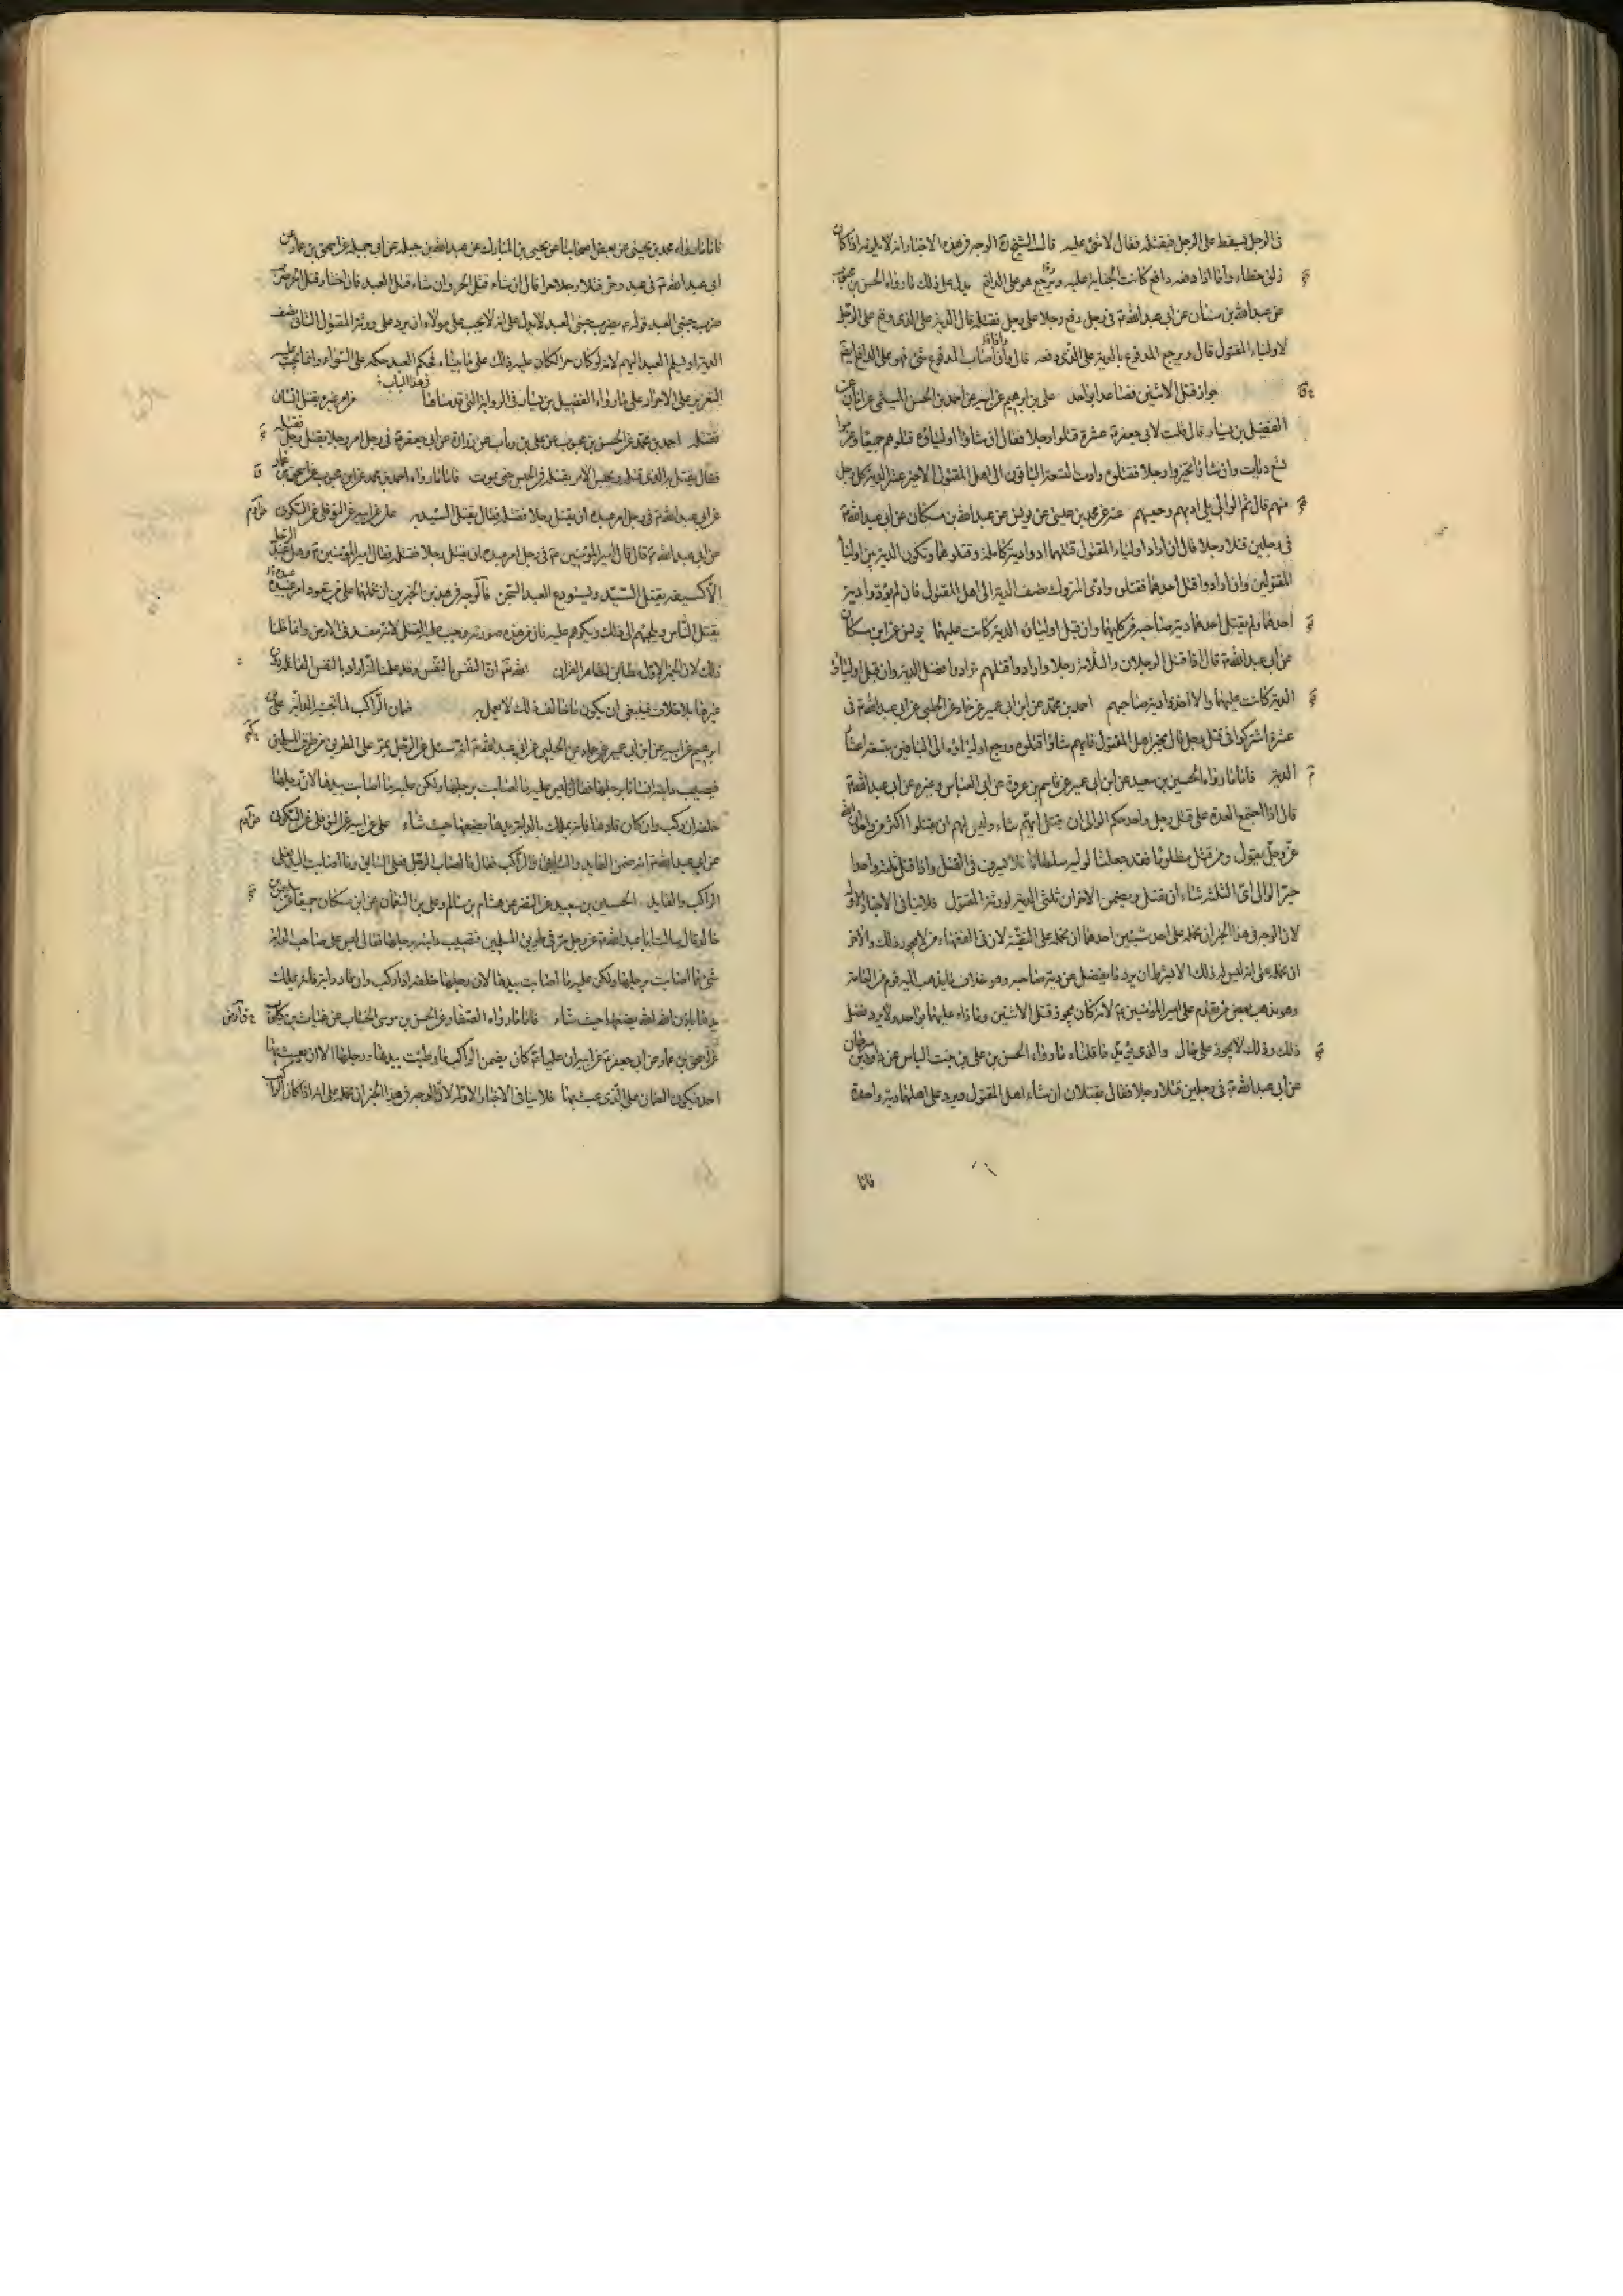 فى الرجل يسقط على الرجل فيقتله فقال لا شئ عليه قال الشيخ الوجه فى هذه الاخبار انه لا يلزمه اذا كان
زلق خطاء واما اذا دفعه دافع كانت الجناية عليه ويرجع هو على الدافع يدل على ذلك ما رواه الحسن بن محبوب
عن عبدالله بن سنان عن ابى عبدالله ع فى رجل دفع رجلا على رجل فقتله قال الدية على الذى وقع على الرجل
لاولياء المقتول قال ويرجع المدفوع بالدية على الذى دفعه قال وان اصاب المدفوع شئ فهو على الدافع ايضا
جواز قتل الاثنين فصاعدا بواحد على بن ابرهيم عن ابيه عن احمد بن الحسن الميثمى عن ابان عن
الفضيل بن يسار قال قلت لابى جعفر ع عشرة قتلوا رجلا فقال ان شاؤا اولياؤه قتلوهم جميعا وغرموا
تسع ديات وان شاؤا تخيروا رجلا فقتلوه وادت التسعة الباقون الى اهل المقتول الاخير عشر الدية كل رجل
منهم قال ثم الوالى يلى ادبهم وحبسهم عنه عن محمد بن عيسى عن يونس عن عبدالله بن مسكان عن ابى عبدالله ع
فى رجلين قتلا رجلا قال ان اراد اولياء المقتول قتلهما ادوا دية كاملة وقتلوهما وتكون الدية بين اولياء
المقتولين وان ارادوا قتل احدهما فقتلوه وادى المتروك نصف الدية الى اهل المقتول فان لم يؤد دية
احدهما ولم يقتل احدهما دية صاحبه من كليهما وان قبل اولياؤه الدية كانت عليهما يونس عن ابن مسكان
عن ابى عبدالله ع قال اذا قتل الرجلان والثلاثة رجلا وارادوا قتلهم ترادوا فضل الدية وان قبل اولياؤه
الدية كانت عليهما والا اخذوا دية صاحبهم احمد بن محمد عن ابن ابى عمير عن حماد عن الحلبى عن ابى عبدالله ع فى
عشرة اشتركوا فى قتل رجل قال يخير اهل المقتول فايهم شاؤا قتلوه ورجع اولياؤه الى الباقين بتسعة اعشار
الدية فاما ما رواه الحسين بن سعيد عن ابن ابى عمير عن قاسم بن عروة عن ابى العباس وغيره عن ابى عبدالله ع
قال اذا اجتمع العدة على قتل رجل واحد حكم الوالى ان يقتل ايهم شاء وليس لهم ان يقتلوا اكثر من واحد ان الله
عز وجل يقول ومن قتل مظلوما فقد جعلنا لوليه سلطانا فلا يسرف فى القتل واذا قتل ثلثة واحدا
خير الوالى اى الثلثة شاء ان يقتل ويضمن الاخران ثلثى الدية لورثة المقتول فلا ينافى الاخبار الاولة
لان الوجه فى هذا الخبر ان نحمله على احد شيئين احدهما ان نحمله على التقية لان فى الفقهاء من لا يجوز ذلك والاخر
ان نحمله على انه ليس له ذلك الا بشرط ان يرد ما يفضل عن دية صاحبه وهو خلاف ما يذهب اليه قوم من العامة
وهو مذهب بعض من تقدم على امير المؤمنين ع لانه كان يجوز قتل الاثنين وما زاد عليهما بواحد ولا يرد فضل
ذلك وذلك لا يجوز على حال والذى يؤيد ما قلناه ما رواه الحسن بن على بن بنت الياس عن داود بن سرحان
عن ابى عبدالله ع فى رجلين قتلا رجلا فقال يقتلان ان شاء اهل المقتول ويرد على اهلهما دية واحدة
فاما
فاما ما رواه محمد بن يحيى عن بعض اصحابنا عن يحيى بن المبارك عن عبدالله بن جبلة عن ابى جميلة عن اسحق بن عمار عن
ابى عبدالله ع فى عبد وحر قتلا رجلا حرا قال ان شاء قتل الحر وان شاء قتل العبد فان اختار قتل الحر ضرب
ضرب جنبى العبد قوله ع يضرب جنبى العبد لا يدل على انه لا يجب على مولاه ان يرد على ورثة المقتول الثانى نصف
الدية او يسلم العبد اليهم لانه لو كان حرا لكان عليه ذلك على ما بيناه فحكم العبد حكمه على السواء وانما يجب عليه
التعزير على الاحرار على ما رواه الفضيل بن يسار فى الرواية التى قدمناها فى هذا الباب من امر غيره بقتل انسان
فقتله احمد بن محمد عن الحسن بن محبوب عن على بن رئاب عن زرارة عن ابى جعفر ع فى رجل امر رجلا بقتل رجل فقتله
فقال يقتل به الذى قتله ويحبس الآمر بقتله فى الحبس حتى يموت فاما ما رواه احمد بن محمد عن ابن محبوب عن اسحق بن عمار
عن ابى عبدالله ع فى رجل امر عبده ان يقتل رجلا فقتله فقال يقتل السيد به على عن ابيه عن النوفلى عن السكونى
عن ابى عبدالله ع قال قال امير المؤمنين ع فى رجل امر عبده ان يقتل رجلا فقتله فقال امير المؤمنين ع وهل عبد الرجل
الا كسيفه يقتل السيد ويستودع العبد السجن فالوجه فى هذين الخبرين ان نحملهما على من يتعود امر عبيده
بقتل الناس ويلجئهم الى ذلك ويكرههم عليه فان من هذه صورته وجب عليه القتل لانه مفسد فى الارض وانما قلنا
ذلك لان الخبر الاول مطابق لظاهر القران قد علمنا انه اراد بالنفس القاتلة دون
غيرها بلا خلاف فينبغى ان يكون ما خالف ذلك لا يعمل به ضمان الراكب لما تجنيه الدابة على بن
ابرهيم عن ابيه عن ابن ابى عمير عن حماد عن الحلبى عن ابى عبدالله ع انه سئل عن الرجل يمر على الطريق من طرق المسلمين
فتصيب دابته انسانا برجلها فقال ليس عليه ما اصابت برجلها ولكن عليه ما اصابت بيدها لان رجلها
خلفه ان ركب وان كان قاد بها فانه يملك باذن الله يدها يضعها حيث شاء على عن ابيه عن النوفلى عن السكونى
عن ابى عبدالله ع انه ضمن القايد والسايق والراكب فقال ما اصاب الرجل فعلى السايق وما اصابت اليد فعلى
الراكب والقايد الحسين بن سعيد عن النضر عن هشام بن سالم وعلى بن النعمان عن ابن مسكان جميعا عن سليمان بن
خالد قال سالت ابا عبدالله ع عن رجل مر فى طريق المسلمين فتصيب دابته برجلها فقال ليس على صاحب الدابة
شئ مما اصابت برجلها ولكن عليه ما اصابت بيدها لان رجلها خلفه اذا ركب وان قاد دابة فانه يملك
يدها باذن الله يضعها حيث شاء فاما ما رواه الصفار عن الحسن بن موسى الخشاب عن غياث بن كلوب
عن اسحق بن عمار عن ابى جعفر ع عن ابيه ان عليا ع كان يضمن الراكب ما وطئت بيدها ورجلها الا ان يعبث بها
احد فيكون الضمان على الذى عبث بها فلا ينافى الاخبار الاولة لان الوجه فى هذا الخبر ان نحمله على انه اذا كان الراكب